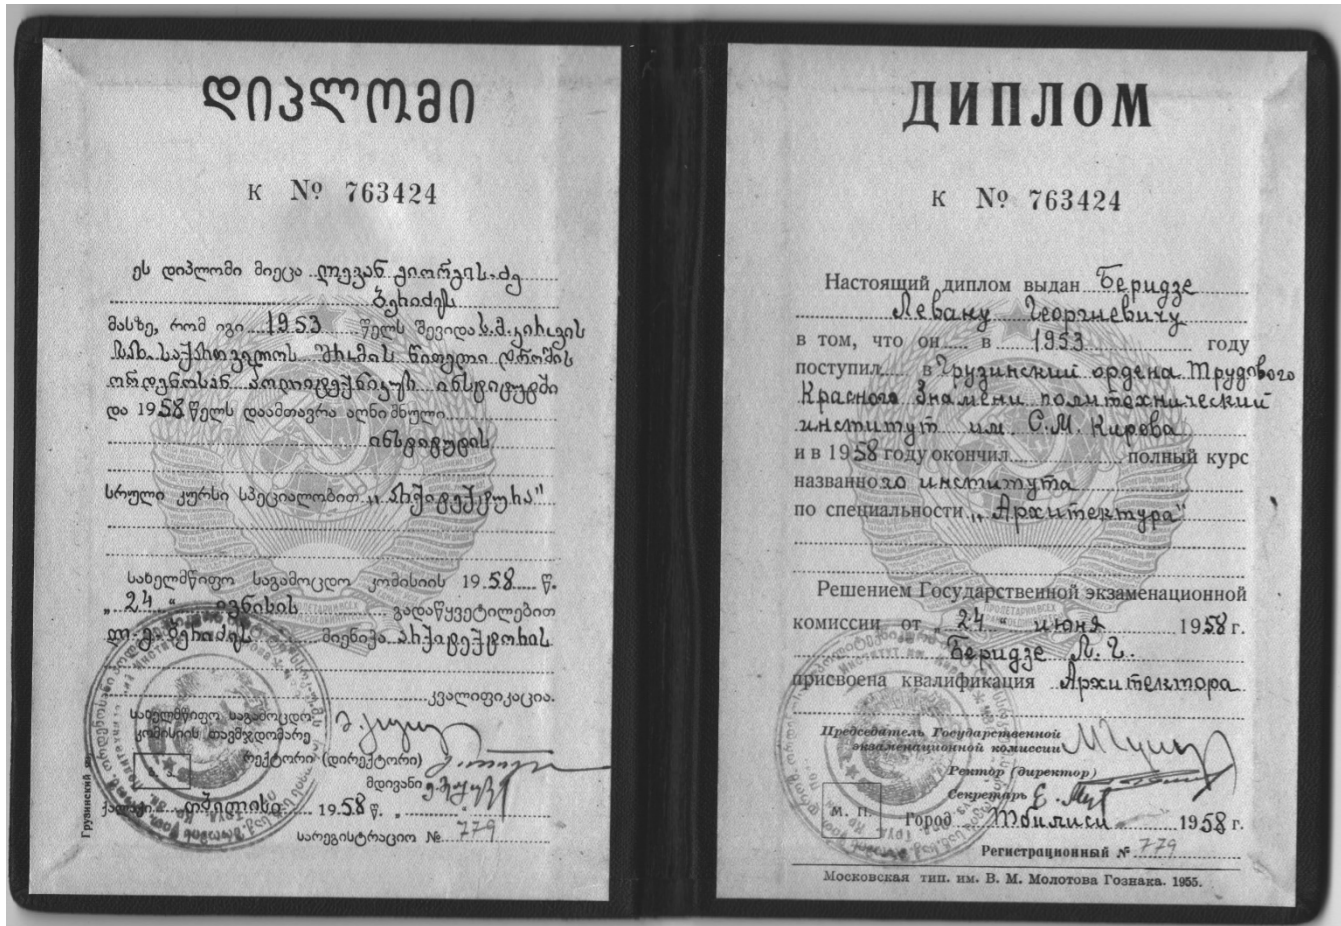 დიპლომი
К № 763424
ეს დიპლომი მიეცა ლევან გიორგის-ძე
ბერიძეს
მასზე, რომ იგი 1953 წელს შევიდა ს.მ.კიროვის
სახ. საქართველოს შრომის წითელი დროშის
ორდენოსან პოლიტექნიკურ ინსტიტუტში
და 1958 წელს დაამთავრა აღნიშნული
ინსტიტუტის
სრული კურსი სპეციალობით „არქიტექტურა"
სახელმწიფო საგამოცდო კომისიის 1958 წ.
„24" ივნისის გადაწყვეტილებით
ლ.გ. ბერიძეს მიენიჭა არქიტექტორის
კვალიფიკაცია.
სახელმწიფო საგამოცდო
კომისიის თავმჯდომარე
რექტორი (დირექტორი)
მდივანი
ქალაქი თბილისი 1958 წ.
სარეგისტრაციო № 779
Грузинский
ДИПЛОМ
К № 763424
Настоящий диплом выдан Беридзе
Левану Георгиевичу
в том, что он в 1953 году
поступил в Грузинский ордена Трудового
Красного Знамени политехнический
институт им. С.М. Кирова
и в 1958 году окончил полный курс
названного института
по специальности „Архитектура"
Решением Государственной экзаменационной
комиссии от „24" июня 1958 г.
Беридзе Л. Г.
присвоена квалификация Архитектора
Председатель Государственной
экзаменационной комиссии
Ректор (директор)
Секретарь
М. П.
Город Тбилиси 1958 г.
Регистрационный № 779
Московская тип. им. В. М. Молотова Гознака. 1955.